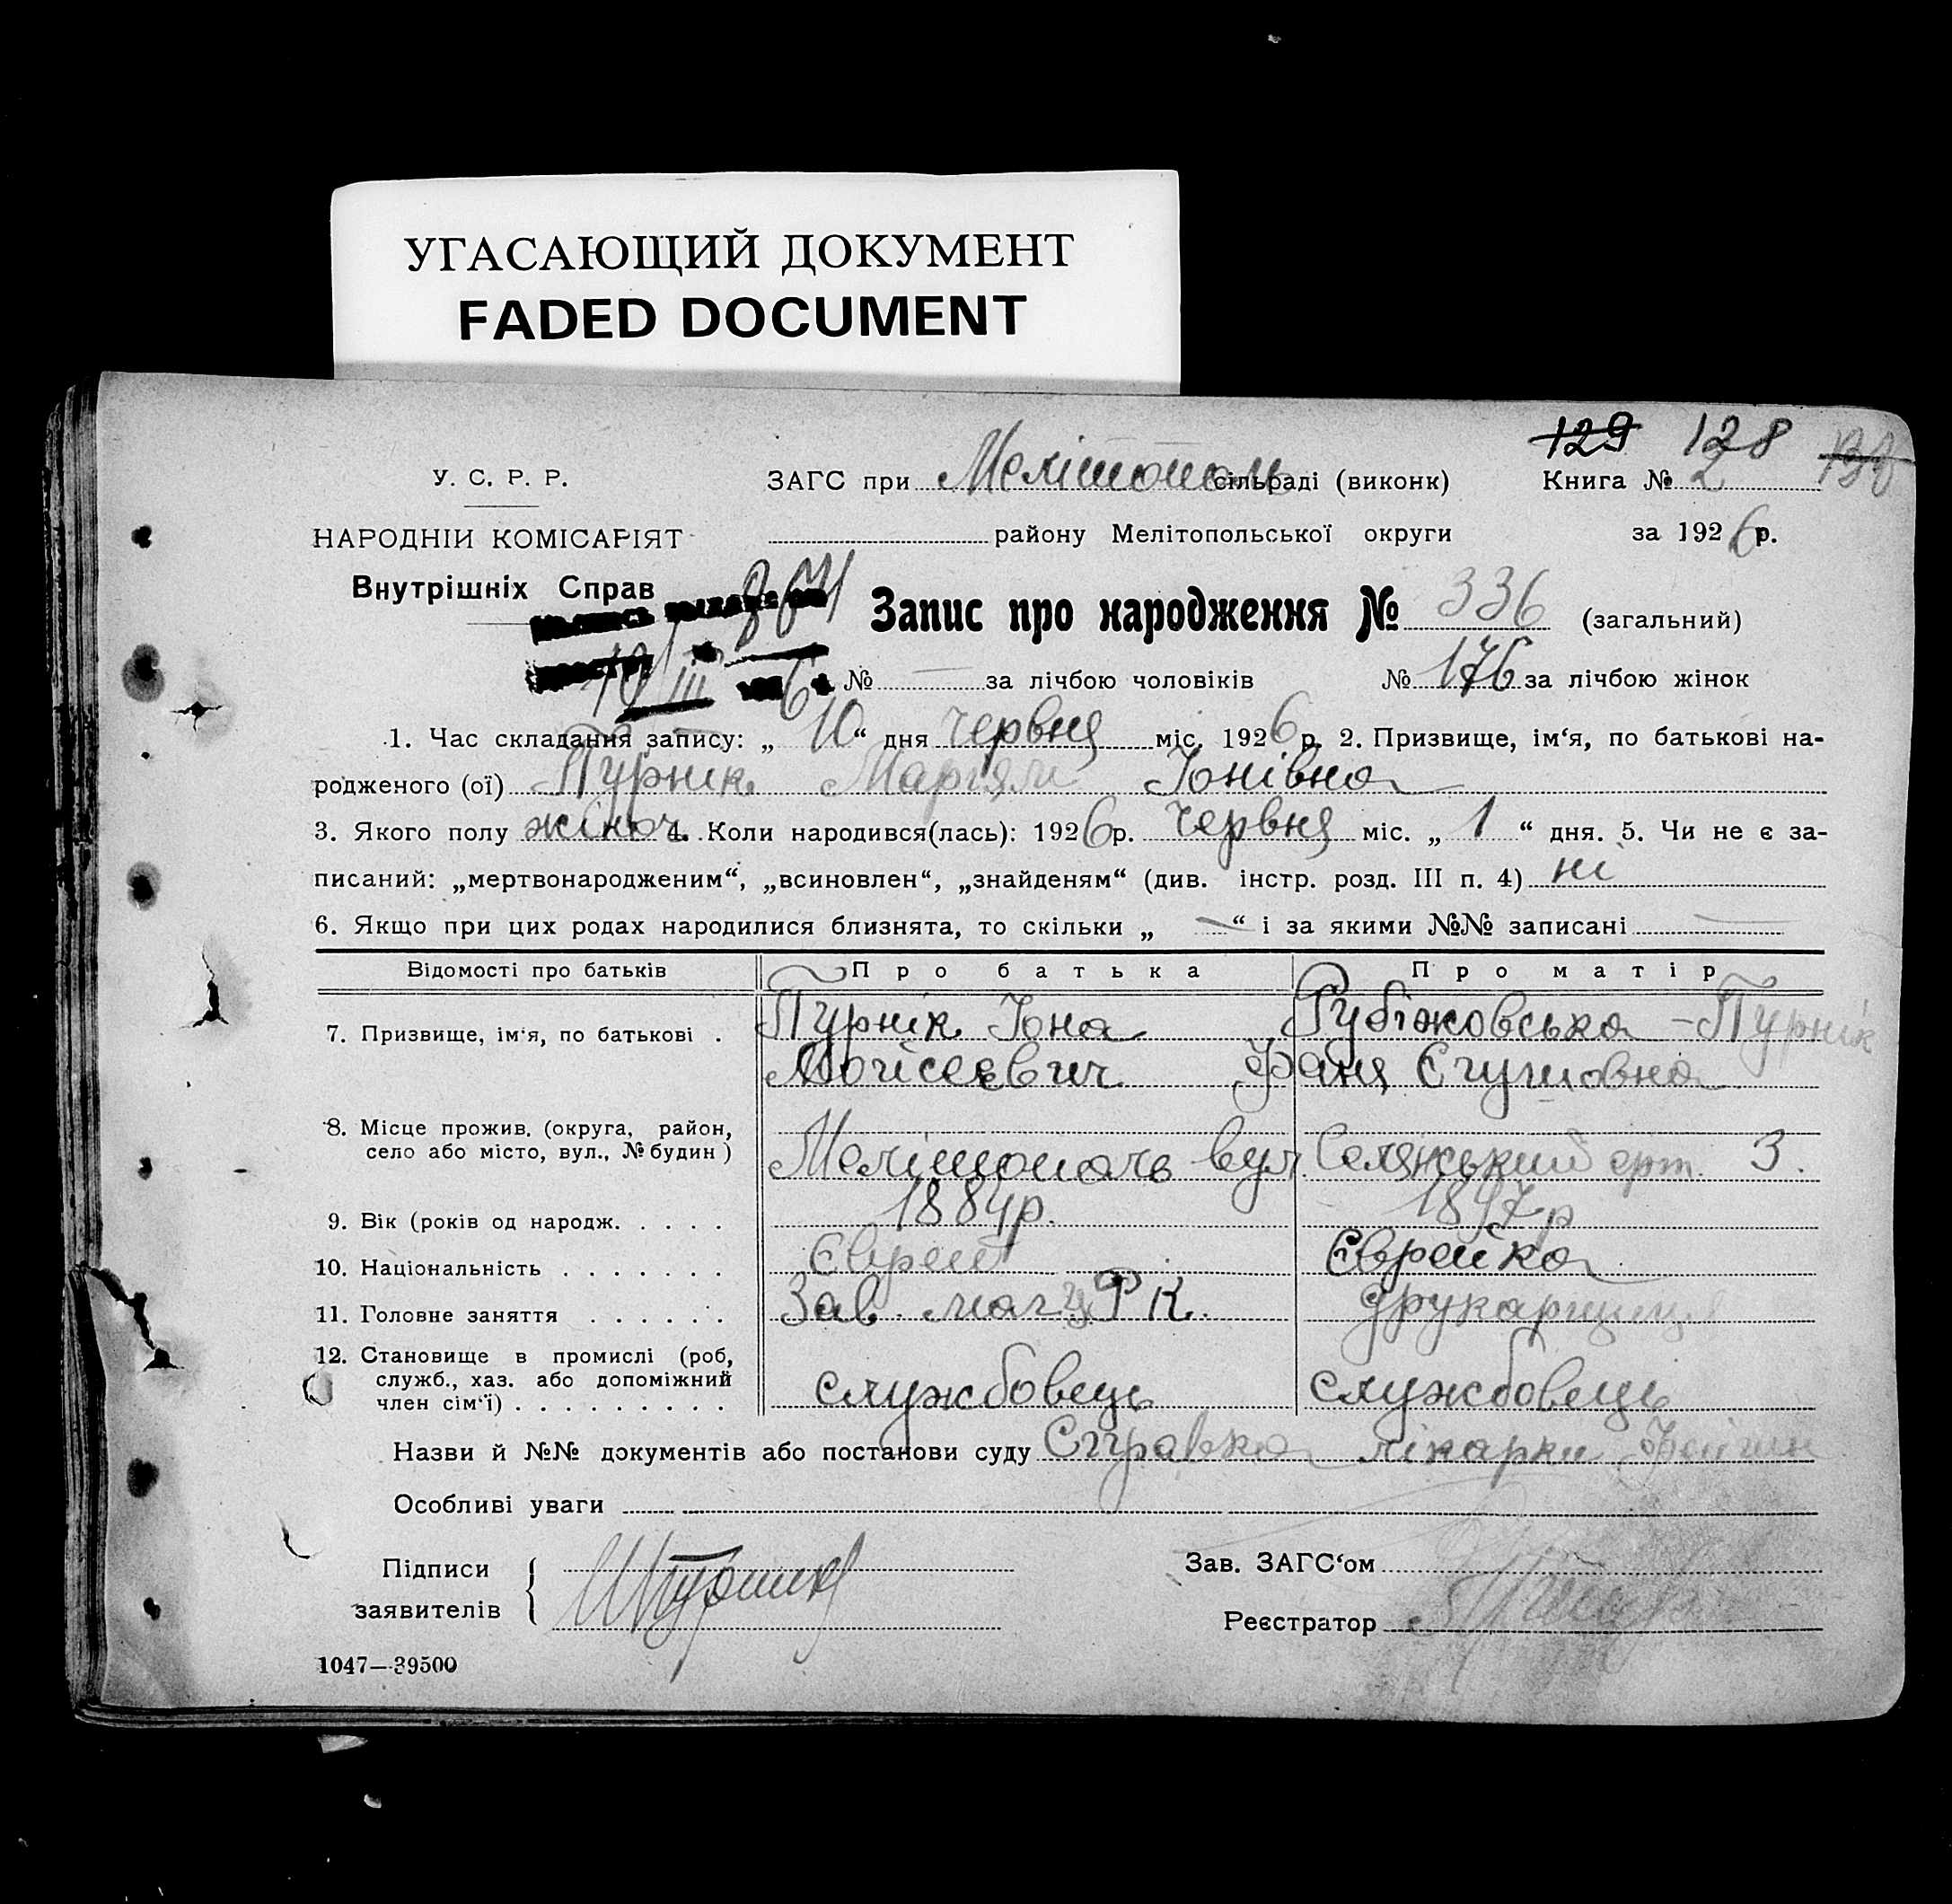 УГАСАЮЩИЙ ДОКУМЕНТ
FADED DOCUMENT
129 128
У. С. Р. Р. ЗАГС при Мелітополь сільраді (виконк) Книга № 2
НАРОДНІЙ КОМІСАРІЯТ району Мелітопольської округи за 1926 р.
Внутрішніх Справ
Запис про народження № 336 (загальний)
№ — за лічбою чоловіків № 176 за лічбою жінок
1. Час складання запису: „ 10 “ дня червня міс. 1926 р. 2. Призвище, ім‘я, по батькові на-
родженого (ої) Пурнік Йонівна
3. Якого полу жіноч. 4. Коли народився(лась): 1926 р. червня міс. „ 1 “ дня. 5. Чи не є за-
писаний: „мертвонародженим“, „всиновлен“, „знайденям“ (див. інстр. розд. III п. 4) ні
6. Якщо при цих родах народилися близнята, то скільки „ — “ і за якими №№ записані —
Відомості про батьків Про батька Про матір
7. Призвище, ім‘я, по батькові . Пурнік Йона Рубіжовська - Пурнік
Мойсеєвич Фаня
8. Місце прожив. (округа, район,
село або місто, вул., № будин) Мелітополь вул. Селянський 3.
9. Вік (років од народж. . . . . 1884р. 1897р
10. Національність . . . . . . . Єврей Єврейка
11. Головне заняття . . . . . . Зав. маг. РК.
12. Становище в промислі (роб,
служб., хаз. або допоміжний
член сім‘ї) . . . . . . . . . службовець службовець
Назви й №№ документів або постанови суду Справка лікарки
Особливі уваги
Підписи Зав. ЗАГС‘ом
заявителів
Реєстратор
1047—39500